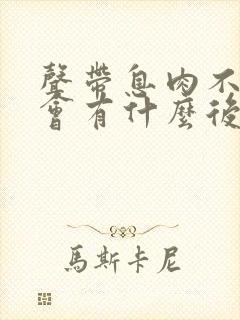 聲帶息肉不
會有什麼後
馬斯卡尼